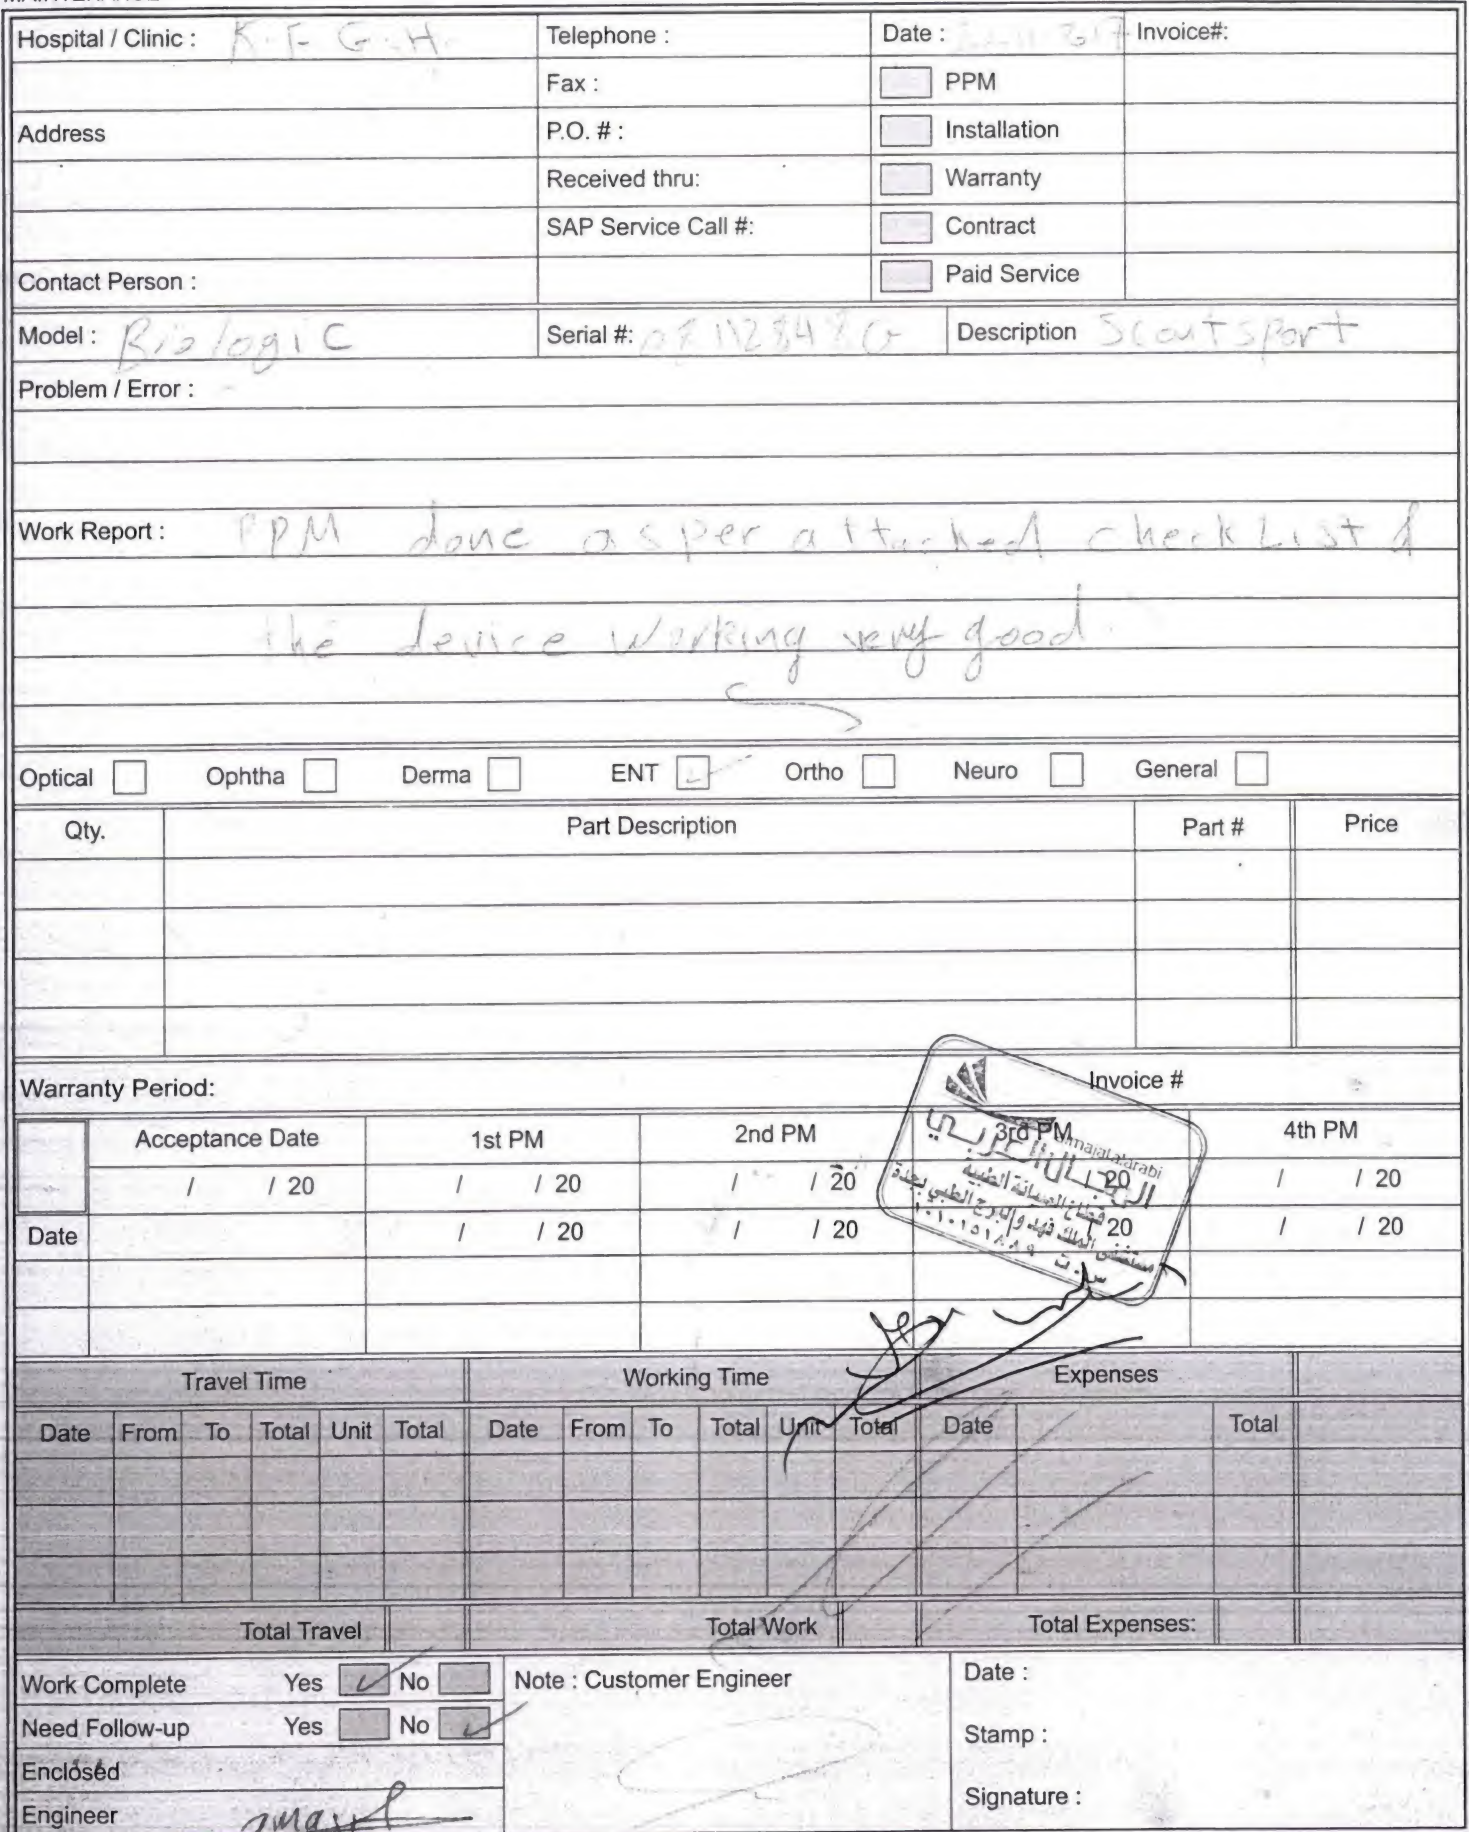 Hospital / Clinic : K. F. G. H. Telephone : Date : Invoice#:
Fax : PPM
Address P.O. # : Installation
Received thru: Warranty
SAP Service Call #: Contract
Contact Person : Paid Service
Model : Biologic Serial #: Description Scoutsport
Problem / Error :
Work Report : PPM done as per attached check List &
the device working very good
Optical Ophtha Derma ENT Ortho Neuro General
Qty. Part Description Part # Price
Warranty Period: Invoice #
Acceptance Date 1st PM 2nd PM 3rd PM 4th PM
/ / 20 / / 20 / / 20 20 / / 20
Date / / 20 / / 20 / 20 / / 20
almajal alarabi
المجال العربي
قطاع الصيانة الطبية
مستشفى الملك فهد والبرج الطبي بجدة
س . ت ١٠١٠١٥١٨٨٩
Travel Time Working Time Expenses
Date From To Total Unit Total Date From To Total Unit Total Date Total
Total Travel Total Work Total Expenses:
Work Complete Yes No Note : Customer Engineer Date :
Need Follow-up Yes No Stamp :
Enclosed
Engineer Signature :